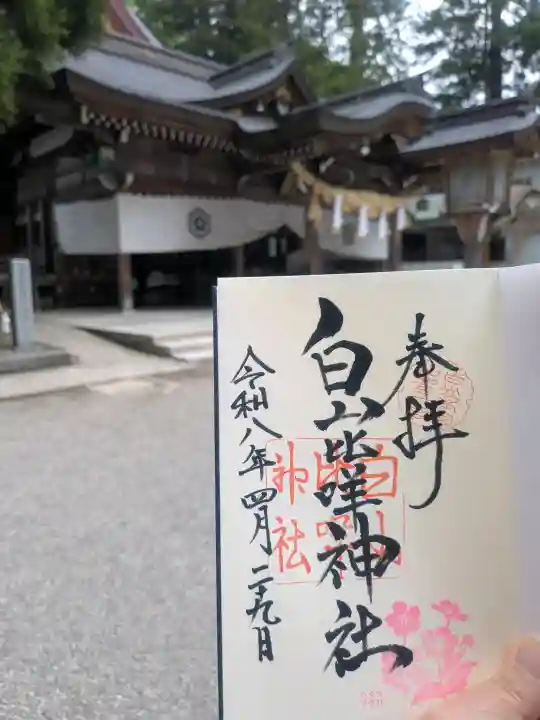 奉拝
白山比咩神社
白山比咩神社
令和八年四月二十九日